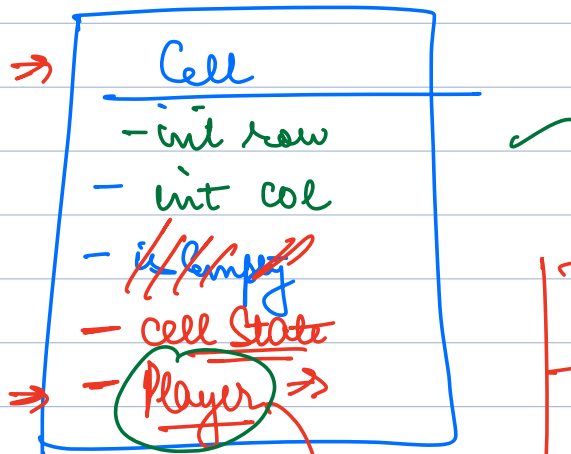 Cell
- int row
- int col
- isEmpty
- cell State
- Player